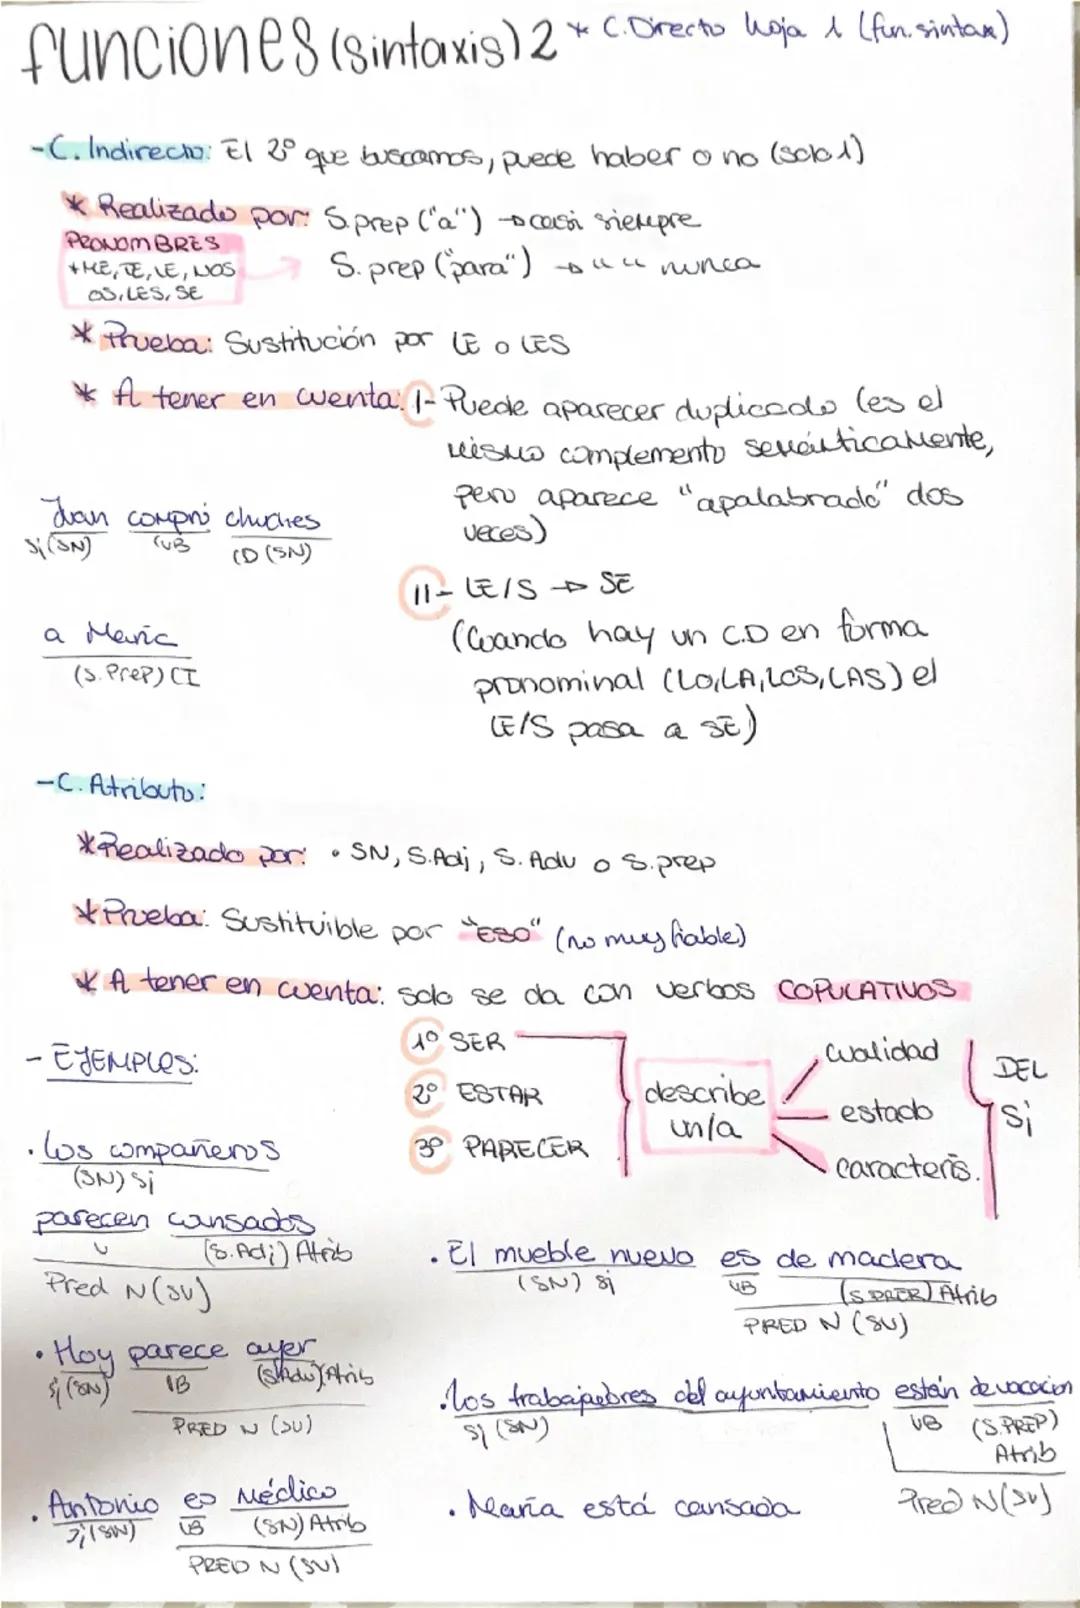 funciones (sintaxis) 2 * C.Directo hoja 1 (fun. sintax)
-C. Indirecto: El 2º que buscamos, puede haber o no (solo 1)
* Realizado por: S.prep ("a") → casi siempre
PRONOMBRES
+ ME, TE, LE, NOS
OS, LES, SE
S. prep ("para") → " " nunca
* Prueba: Sustitución por LE o LES
* A tener en cuenta: I- Puede aparecer duplicado (es el
mismo complemento semánticamente,
pero aparece "apalabrado" dos
veces)
Juan compró chuches
Sj (SN) VB CD (SN)
II- LE/S → SE
(Cuando hay un C.D en forma
pronominal (LO, LA, LOS, LAS) el
LE/S pasa a SE)
a María
(S. Prep) CI
-C. Atributo:
* Realizado por: • SN, S.Adj, S. Adv o S.prep
* Prueba: Sustituible por "ESO" (no muy fiable)
* A tener en cuenta: solo se da con verbos COPULATIVOS
1º SER
2º ESTAR
3º PARECER
describe
un/a
cualidad
estado
caracterís.
DEL
Sj
- EJEMPLOS:
• Los compañeros
(SN) Sj
parecen cansados
V (S.Adj) Atrib
Pred N (SV)
• El mueble nuevo es de madera
(SN) Sj VB (S.PREP) Atrib
PRED N (SV)
• Hoy parece ayer
Sj (SN) VB (SAdv) Atrib
PRED N (SV)
• Los trabajadores del ayuntamiento están de vacación
Sj (SN) VB (S.PREP)
Atrib
Pred N (SV)
• Antonio es Médico
Sj (SN) VB (SN) Atrib
PRED N (SV)
• María está cansada